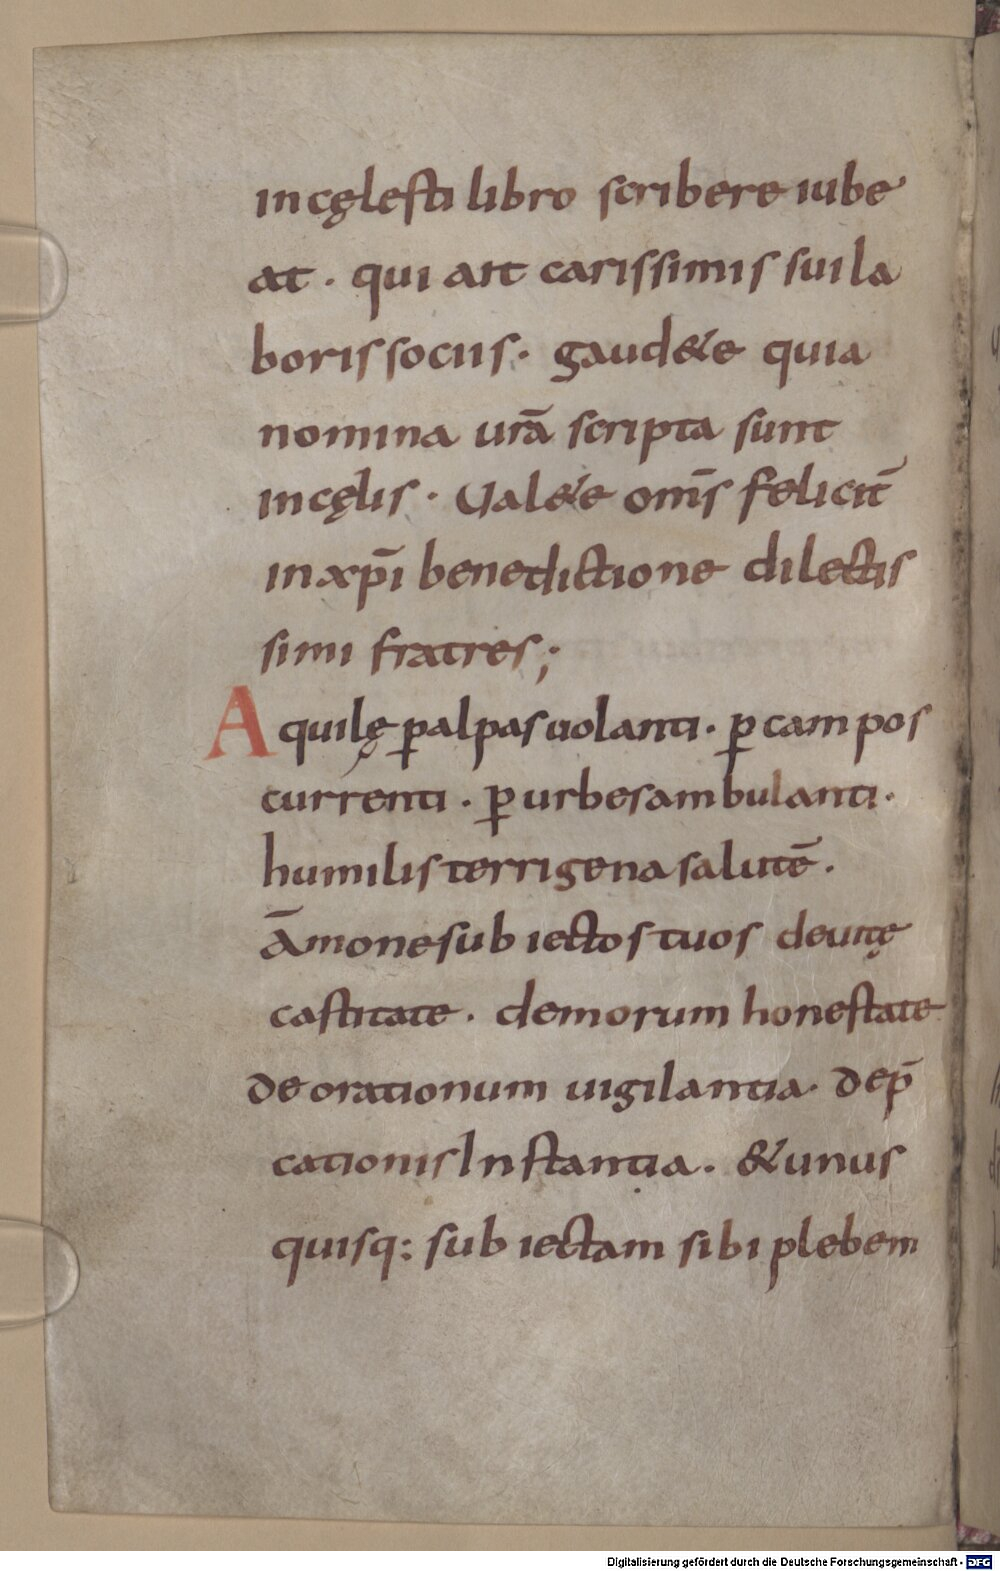 in cęlesti libro scribere iube
at . qui ait carissimis sui la
boris sociis . gaud&e quia
nomina urā scripta sunt
in cęlis . Ual&e om̄s felicit̄
in xp̄i benedictione dilectis
simi fratres ;
Aquilę ꝑ alpas uolanti . ꝑ campos
currenti . ꝑ urbes ambulanti .
humilis terrigena salutē .
Āmone subiectos tuos de uitę
castitate . de morum honestate
de orationum uigilantia . de p̄
cationis Instantia . & unus
quisq: subiectam sibi plebem
Digitalisierung gefördert durch die Deutsche Forschungsgemeinschaft - DFG